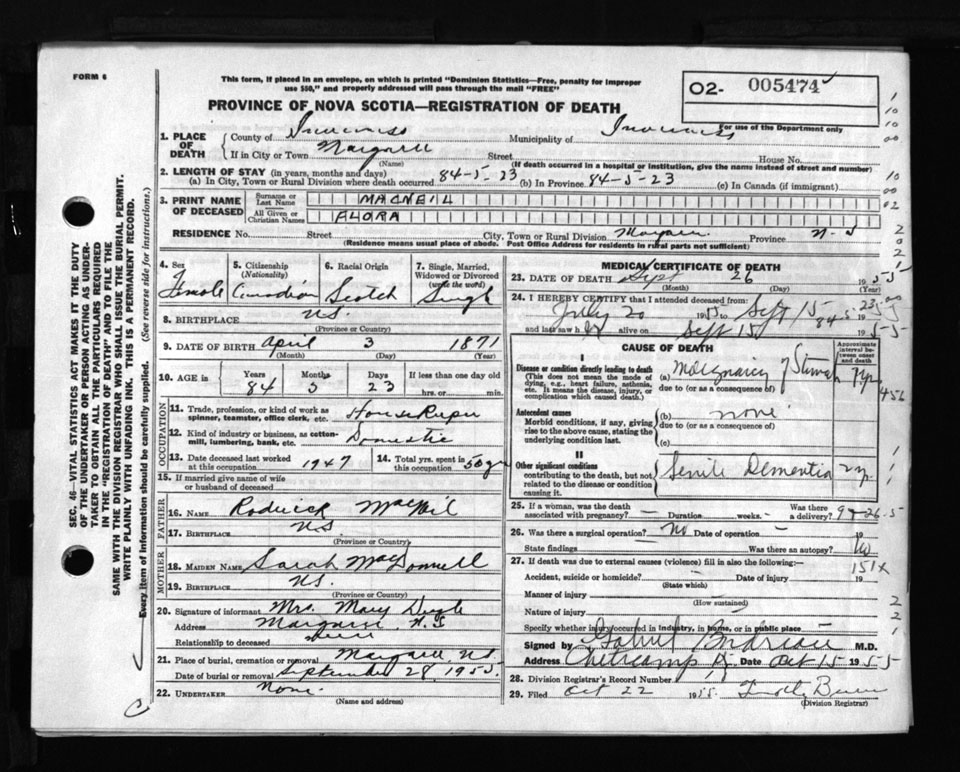 FORM 6
This form, if placed in an envelope, on which is printed "Dominion Statistics—Free, penalty for improper
use $50," and properly addressed will pass through the mail "FREE"
O2- 005474
For use of the Department only
PROVINCE OF NOVA SCOTIA—REGISTRATION OF DEATH
1. PLACE OF DEATH
County of Inverness Municipality of Inverness
If in City or Town Margaree Street House No.
(Name) (If death occurred in a hospital or institution, give the name instead of street and number)
2. LENGTH OF STAY (in years, months and days)
(a) In City, Town or Rural Division where death occurred 84-5-23 (b) In Province 84-5-23 (c) In Canada (if immigrant)
3. PRINT NAME OF DECEASED
Surname or Last Name MACNEIL
All Given or Christian Names FLORA
RESIDENCE No. Street City, Town or Rural Division Margaree Province N.S
(Residence means usual place of abode. Post Office Address for residents in rural parts not sufficient)
4. Sex Female
5. Citizenship (Nationality) Canadian
6. Racial Origin Scotch
7. Single, Married, Widowed or Divorced (write the word) Single
8. BIRTHPLACE N.S.
(Province or Country)
9. DATE OF BIRTH April 3 1871
(Month) (Day) (Year)
10. AGE in Years Months Days If less than one day old
84 5 23 hrs. or min.
OCCUPATION
11. Trade, profession or kind of work as
spinner, teamster, office clerk, etc. House Keeper
12. Kind of industry or business, as cotton-
mill, lumbering, bank, etc. Domestic
13. Date deceased last worked
at this occupation 1947
14. Total yrs. spent in
this occupation 50 yr
15. If married give name of wife
or husband of deceased
FATHER
16. NAME Roderick MacNeil
17. BIRTHPLACE N.S
(Province or Country)
MOTHER
18. MAIDEN NAME Sarah MacDonnell
19. BIRTHPLACE N.S.
(Province or Country)
20. Signature of informant Mrs. Mary
Address Margaree N.S
Relationship to deceased
21. Place of burial, cremation or removal Margaree N.S
Date of burial or removal September 28, 1955.
22. UNDERTAKER None.
(Name and address)
MEDICAL CERTIFICATE OF DEATH
23. DATE OF DEATH Sept 26 1955
(Month) (Day) (Year)
24. I HEREBY CERTIFY that I attended deceased from
July 20 1955 to Sept 15 1955
and last saw h er alive on Sept 15 1955
84-5-23
CAUSE OF DEATH
Approximate interval between onset and death
I
Disease or condition directly leading to death
(This does not mean the mode of
dying, e.g., heart failure, asthenia,
etc. It means the disease, injury, or
complication which caused death.)
(a) Malignancy of Stomach 1 yr
due to (or as a consequence of)
Antecedent causes
Morbid conditions, if any, giving
rise to the above cause, stating the
underlying condition last.
(b) none
due to (or as a consequence of)
(c)
II
Other significant conditions
contributing to the death, but not
related to the disease or condition
causing it.
Senile Dementia 2 yr.
25. If a woman, was the death
associated with pregnancy? - Duration weeks. - Was there a delivery?
9-26-5
26. Was there a surgical operation? No Date of operation 19
State findings Was there an autopsy? No
27. If death was due to external causes (violence) fill in also the following:-
151X
Accident, suicide or homicide? Date of injury 19
(State which)
Manner of injury
(How sustained)
Nature of injury
Specify whether injury occurred in industry, in home, or in public place
Signed by M.D.
Address Cheticamp Date Oct 15 1955
28. Division Registrar's Record Number
29. Filed Oct 22 1955
(Division Registrar)
456
SEC. 46—VITAL STATISTICS ACT MAKES IT THE DUTY
OF THE UNDERTAKER OR PERSON ACTING AS UNDER-
TAKER TO OBTAIN ALL THE PARTICULARS REQUIRED
IN THE "REGISTRATION OF DEATH" AND TO FILE THE
SAME WITH THE DIVISION REGISTRAR WHO SHALL ISSUE THE BURIAL PERMIT.
WRITE PLAINLY WITH UNFADING INK. THIS IS A PERMANENT RECORD.
Every item of information should be carefully supplied. (See reverse side for instructions.)